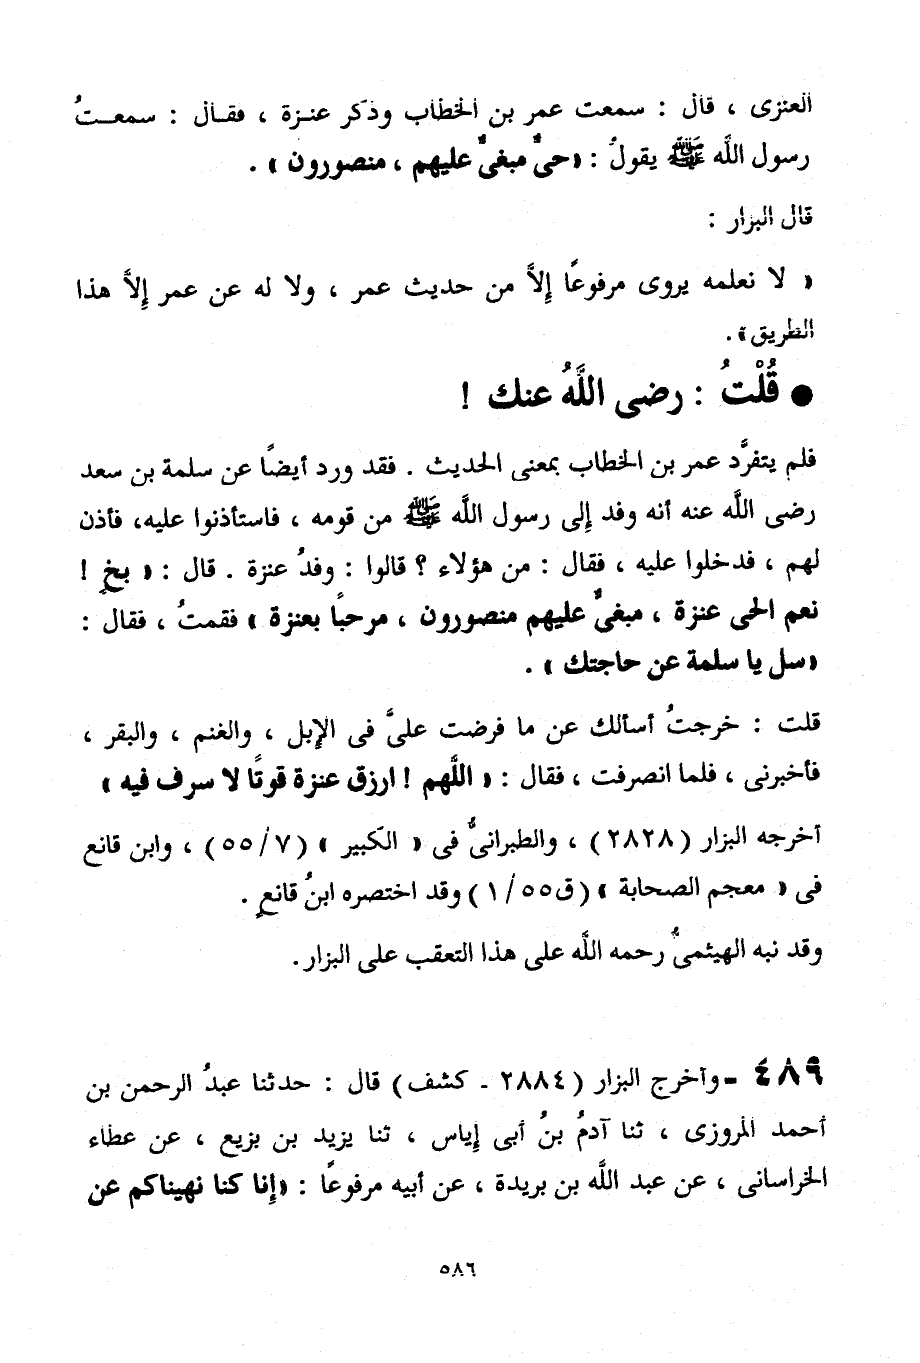 العنزى ، قال : سمعت عمر بن الخطاب وذكر عنـزة ، فقـال : سمعــتُ
رسول اللَّه ﷺ يقولُ : «حىٌّ مبغىٌّ عليهم ، منصورون » .
قال البزار :
« لا نعلمه يروى مرفوعًا إلاَّ من حديث عمر ، ولا له عن عمر إلاَّ هذا
الطريق» .
● قُلْتُ : رضى اللَّهُ عنك !
فلم يتفرَّد عمر بن الخطاب بمعنى الحديث . فقد ورد أيضًا عن سلمة بن سعد
رضى اللَّه عنه أنه وفد إلى رسول اللَّه ﷺ من قومه ، فاستأذنوا عليه، فأذن
لهم ، فدخلوا عليه ، فقال : من هؤلاء ؟ قالوا : وفدُ عنزة . قال : « بخٍ !
نعم الحى عنزة ، مبغىٌّ عليهم منصورون ، مرحبًا بعنزة » فقمتُ ، فقال :
«سل يا سلمة عن حاجتك » .
قلت : خرجتُ أسألك عن ما فرضت علىَّ فى الإبل ، والغنم ، والبقر ،
فأخبرنى ، فلما انصرفت ، فقال : « اللَّهم ! ارزق عنزة قوتًا لا سرف فيه »
أخرجه البزار (٢٨٢٨) ، والطبرانىُّ فى « الكبير » (٥٥/٧) ، وابن قانع
فى « معجم الصحابة » (ق١/٥٥) وقد اختصره ابنُ قانعٍ .
وقد نبه الهيثمىُّ رحمه اللَّه على هذا التعقب على البزار.
٤٨٩ - وأخرج البزار (٢٨٨٤ - كشف) قال : حدثنا عبدُ الرحمن بن
أحمد المروزى ، ثنا آدمُ بنُ أبى إياس ، ثنا يزيد بن بزيع ، عن عطاء
الخراسانى ، عن عبد اللَّه بن بريدة ، عن أبيه مرفوعًا : «إنا كنا نهيناكم عن
٥٨٦